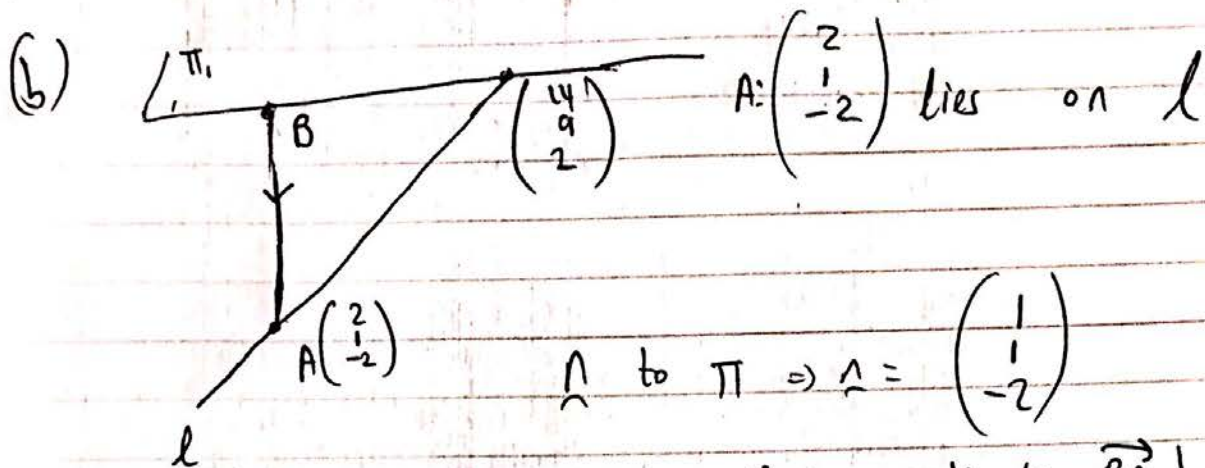 (b)
π₁
B
(14 9 2)
A: (2 1 -2) lies on l
A (2 1 -2)
n to π ⇒ n = (1 1 -2)
l